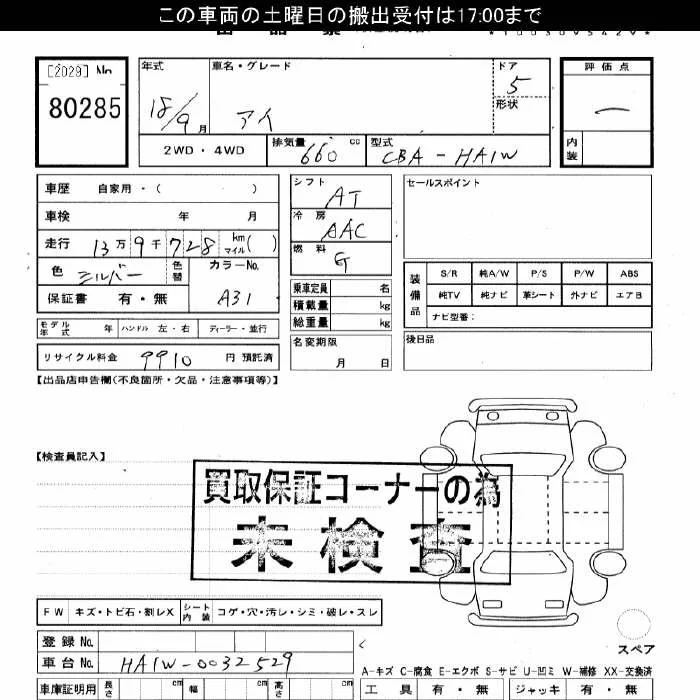 この車両の土曜日の搬出受付は17:00まで
[2029] No. 80285
年式 18/9月
車名・グレード アイ
ドア 5
形状
評価点 —
内装
2WD・4WD
排気量 660 cc
型式 CBA-HA1W
車歴 自家用・( )
車検 年 月
走行 13万9千728 km マイル( )
色 シルバー 色替
カラーNo. A31
保証書 有・無
シフト AT
冷房 AAC
燃料 G
乗車定員 名
積載量 kg
総重量 kg
名変期限 月 日
セールスポイント
装備品
S/R 純A/W P/S P/W ABS
純TV 純ナビ 革シート 外ナビ エアB
ナビ型番:
後日品
モデル年式 年 ハンドル 左・右 ディーラー・並行
リサイクル料金 9910 円 預託済
【出品店申告欄(不良箇所・欠品・注意事項等)】
【検査員記入】
買取保証コーナーの為
未検査
FW キズ・トビ石・割レX シート内装 コゲ・穴・汚レ・シミ・破レ・スレ
登録No.
車台No. HA1W-0032529
スペア
A-キズ C-腐食 E-エクボ S-サビ U-凹ミ W-補修 XX-交換済
車庫証明用 長さ cm 幅 cm 高さ cm
工具 有・無 ジャッキ 有・無